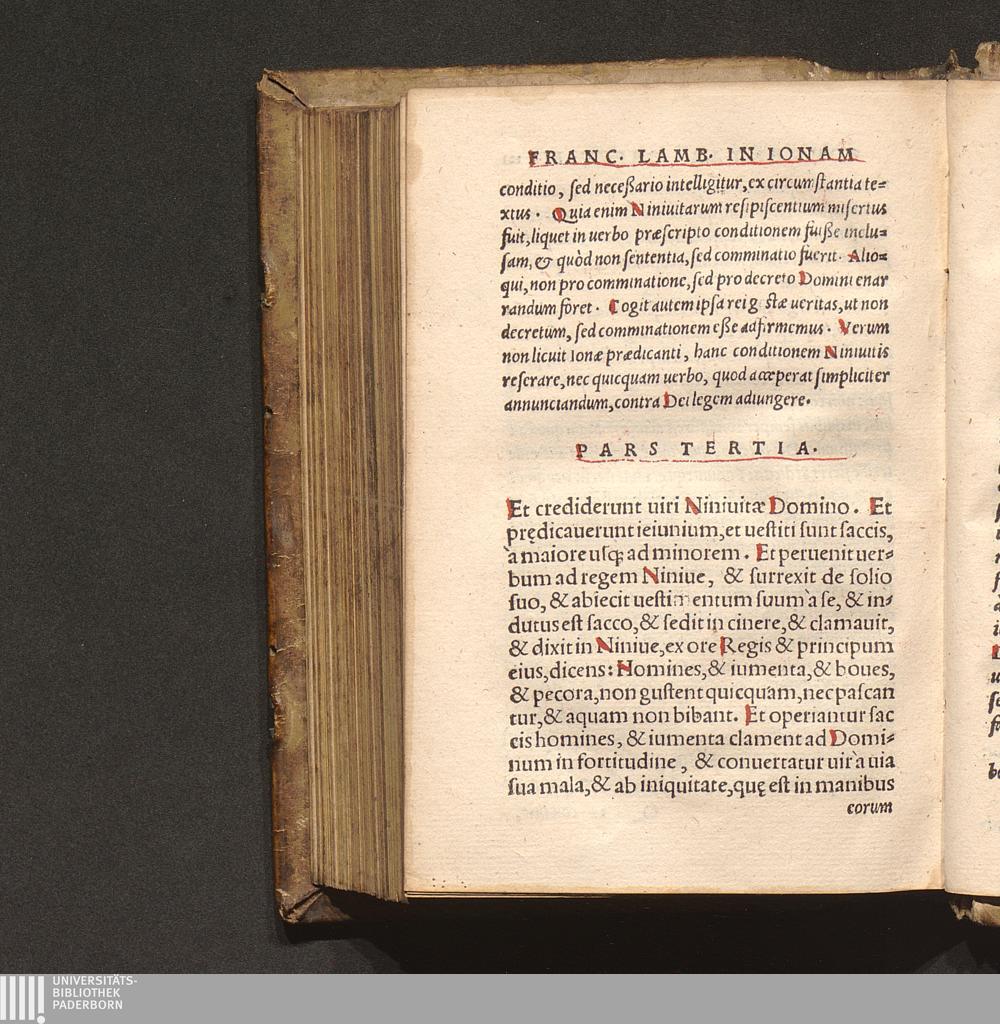 FRANC. LAMB. IN IONAM
conditio, sed neceßario intelligitur, ex circumstantia te=
xtus. Quia enim Niniuitarum resipiscentium misertus
fuit, liquet in uerbo præscripto conditionem fuiße inclu=
sam, & quòd non sententia, sed comminatio fuerit. Alio=
qui, non pro comminatione, sed pro decreto Domini enar
randum foret. Cogit autem ipsa rei g stæ ueritas, ut non
decretum, sed comminationem eße adfirmemus. Verum
non licuit Ionæ prædicanti, hanc conditionem Niniuitis
reserare, nec quicquam uerbo, quod acceperat simpliciter
annunciandum, contra Dei legem adiungere.
PARS TERTIA.
Et crediderunt uiri Niniuitæ Domino. Et
prędicauerunt ieiunium, et uestiti sunt saccis,
à maiore usq̃ ad minorem. Et peruenit uer=
bum ad regem Niniue, & surrexit de solio
suo, & abiecit uestimentum suum à se, & in=
dutus est sacco, & sedit in cinere, & clamauit,
& dixit in Niniue, ex ore Regis & principum
eius, dicens: Homines, & iumenta, & boues,
& pecora, non gustent quicquam, nec pascan
tur, & aquam non bibant. Et operiantur sac
cis homines, & iumenta clament ad Domi=
num in fortitudine, & conuertatur uir à uia
sua mala, & ab iniquitate, quę est in manibus
eorum
UNIVERSITÄTS-
BIBLIOTHEK
PADERBORN